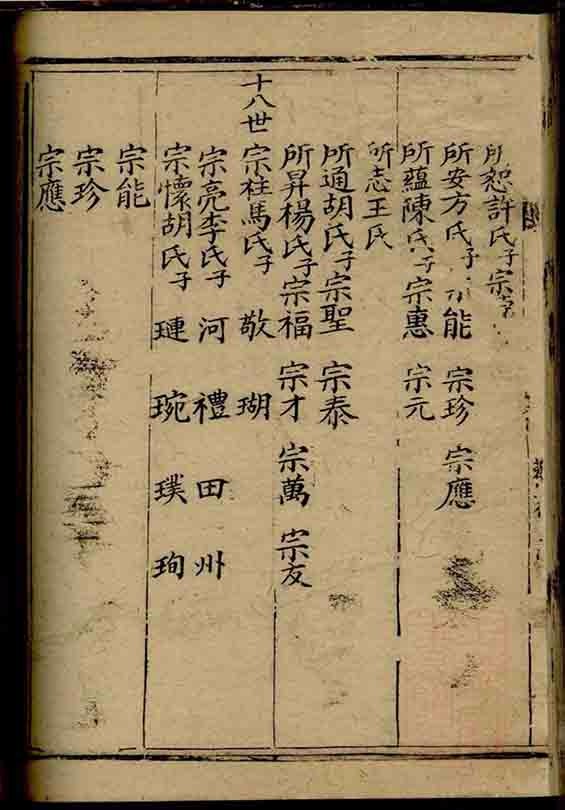 所恕許氏子宗
所安方氏子宗能 宗珍 宗應
所蘊陳氏子宗惠 宗元
所志王氏
所通胡氏子宗聖 宗泰
所昇楊氏子宗福 宗才 宗萬 宗友
十八世 宗柱馬氏子 敬 瑚
宗亮李氏子 河 禮 田 州
宗懷胡氏子 璉 琬 璞 珣
宗能
宗珍
宗應